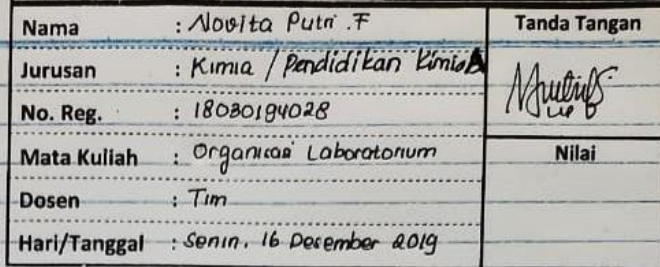 Nama : Novita Putri .F
Tanda Tangan
Jurusan : Kimia / Pendidikan Kimia A
No. Reg. : 18030194028
Mata Kuliah : Organisasi Laboratorium
Nilai
Dosen : Tim
Hari/Tanggal : Senin, 16 Desember 2019